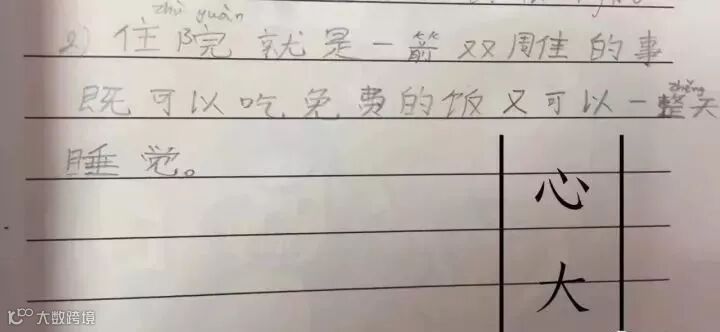 zhù yuàn
2) 住院就是一箭双雕的事
zhěng
既可以吃免费的饭又可以一整天
睡觉。
心
大
大数跨境